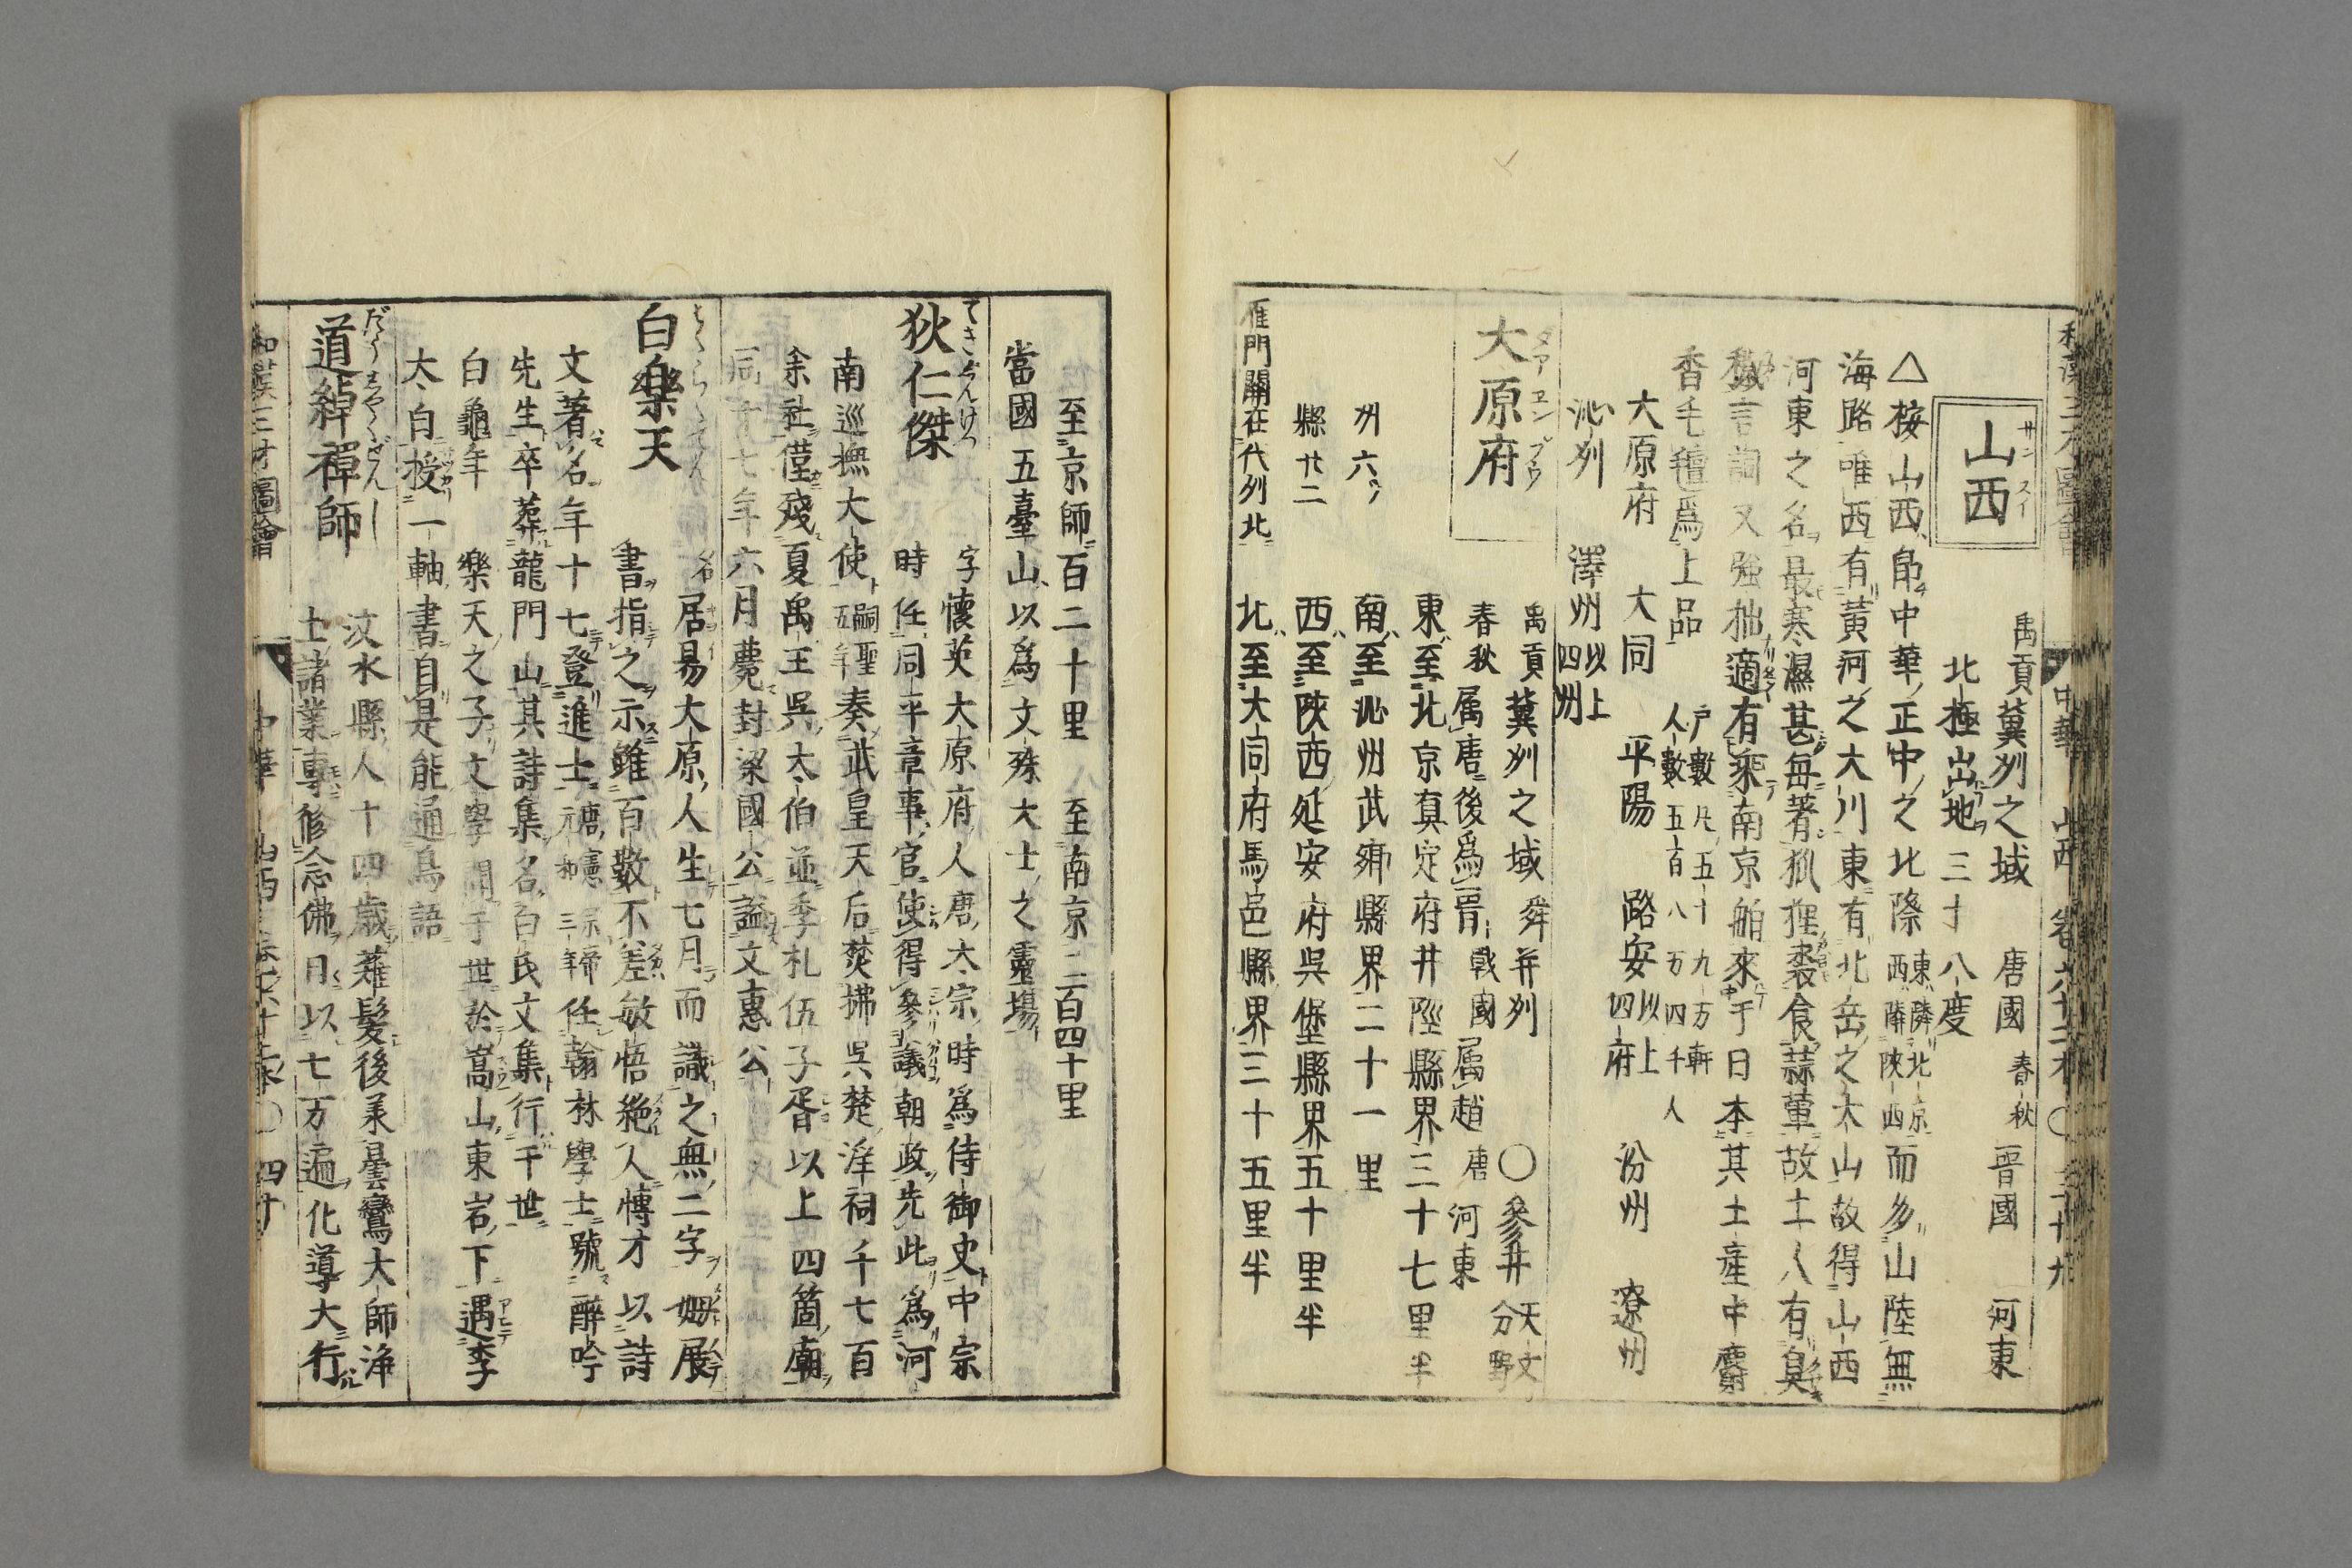 中華 山西
山西
サンスイ
禹貢冀州之域 唐國 春秋 晋國 河東
北極出地三十八度
△按山西帛中華正中之北際 東隣北京 西隣陝西 而多山陸無
海路唯西有黃河之大川東有北岳之大山故得山西
河東之名最寒濕甚毎著狐狸裘食蒜葷故土人有臭
穢言詞又強拙適有乘南京舶來于日本其土産中麝
香毛氊爲上品 戸數凡五十九万軒 人數五百八万四千人
大原府 大同 平陽 路安 以上四府 汾州 遼州
沁州 澤州 以上四州
大原府
タアエンプウ
禹貢冀州之域 舜并州 ○參井 天文分野
春秋属唐後爲晋 戰國属趙 唐河東
東至北京真定府井陘縣界三十七里半
州六ツ 南至沁州武郷縣界二十一里
縣廿二 西至陝西延安府呉堡縣界五十里半
雁門關在代州北 北至大同府馬邑縣界三十五里半
至京師百二十里 至南京二百四十里
當國五臺山以爲文殊大士之靈場
狄仁傑
てきじんけつ
字懷英大原府人唐太宗時爲侍御史中宗
時任同平章事官使得參議朝政先此爲河
南巡撫大使 嗣聖五年 奏武皇天后焚拂呉楚淫祠千七百
余社僅殘夏禹王呉太伯並季札伍子胥以上四箇廟
同十七年六月薨封梁國公謚文惠公
白樂天
はくらくてん
名居易大原人生七月而識之無二字姆展
書指之示雖百數不差敏悟絶人博才以詩
文著名年十七登進士 唐憲宗元和三年 任翰林學士號醉吟
先生卒葬龍門山其詩集名白氏文集行于世
白龜年 樂天之子文學聞于世於嵩山東岩下遇李
太白授一軸書自是能通鳥語
道綽禪師
だうしやくぜん
汶水縣人十四歳薙髮後承曇鸞大師淨
土諸業專修念佛日以七万遍化導大行
和漢三才圖會 中華 山西 卷六十二本 ○ 四十